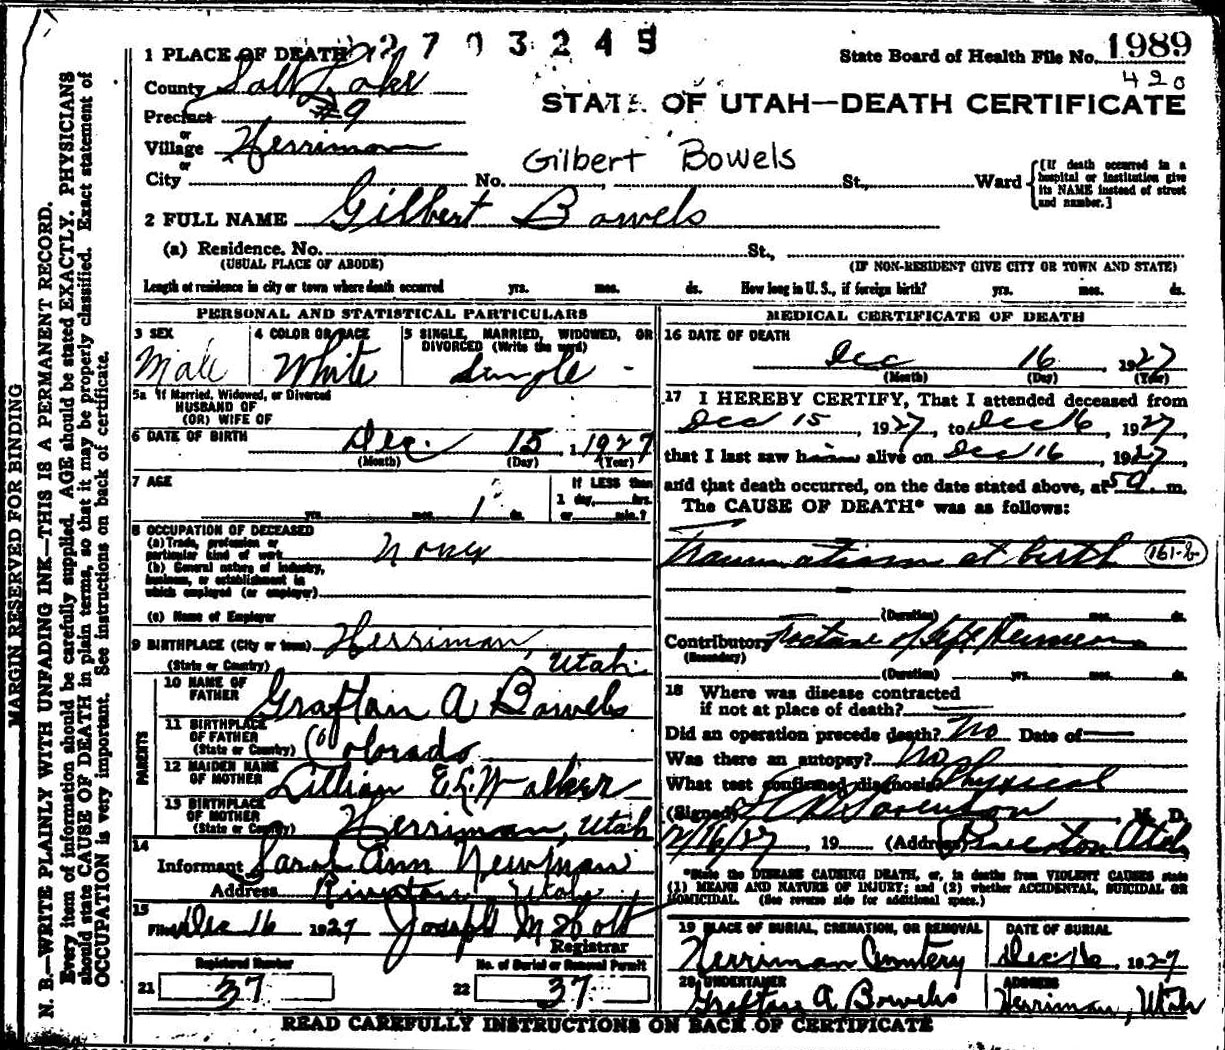 2703245
1 PLACE OF DEATH
State Board of Health File No. 1989
420
County Salt Lake
Precinct #9
STATE OF UTAH—DEATH CERTIFICATE
or
Village Herriman
Gilbert Bowels
or
City No. St., Ward
[If death occurred in a hospital or institution give its NAME instead of street and number.]
2 FULL NAME Gilbert Bowels
(a) Residence. No. St.,
(USUAL PLACE OF ABODE) (IF NON-RESIDENT GIVE CITY OR TOWN AND STATE)
Length of residence in city or town where death occurred yrs. mos. ds. How long in U. S., if foreign birth? yrs. mos. ds.
PERSONAL AND STATISTICAL PARTICULARS
3 SEX
Male
4 COLOR OR RACE
White
5 SINGLE, MARRIED, WIDOWED, OR
DIVORCED (Write the word)
Single
5a If Married, Widowed, or Divorced
HUSBAND OF
(OR) WIFE OF
6 DATE OF BIRTH Dec. 15, 1927
(Month) (Day) (Year)
7 AGE
yrs. mos. 1 ds.
If LESS than
1 day, hrs.
or min.?
8 OCCUPATION OF DECEASED
(a) Trade, profession or
particular kind of work
(b) General nature of industry,
business, or establishment in
which employed (or employer)
(c) Name of Employer
9 BIRTHPLACE (City or town) Herriman,
(State or Country) Utah.
PARENTS
10 NAME OF
FATHER Graftan A Bowels
11 BIRTHPLACE
OF FATHER
(State or Country) Colorado
12 MAIDEN NAME
OF MOTHER Lillian E. Walker
13 BIRTHPLACE
OF MOTHER
(State or Country) Herriman, Utah
14
Informant Sarah Ann Newman
Address Riverton, Utah
15
Filed Dec 16 1927 Joseph M Holt
Registrar
Registered Number
21 37
No. of Burial or Removal Permit
22 37
MEDICAL CERTIFICATE OF DEATH
16 DATE OF DEATH
Dec 16 1927
(Month) (Day) (Year)
17 I HEREBY CERTIFY, That I attended deceased from
Dec 15, 1927, to Dec 16, 1927,
that I last saw him alive on Dec 16, 1927,
and that death occurred, on the date stated above, at 5 a m.
The CAUSE OF DEATH* was as follows:
Traumatism at birth 161-b
(Duration) yrs. mos. ds.
Contributory Fracture of left Humerus
(Secondary)
(Duration) yrs. mos. ds.
18 Where was disease contracted
if not at place of death?
Did an operation precede death? No Date of
Was there an autopsy? No
What test confirmed diagnosis? Physical
(Signed) Sorenson, M. D.
12/16/27, 19 (Address) Utah
*State the DISEASE CAUSING DEATH, or, in deaths from VIOLENT CAUSES state
(1) MEANS AND NATURE OF INJURY; and (2) whether ACCIDENTAL, SUICIDAL OR
HOMICIDAL. (See reverse side for additional space.)
19 PLACE OF BURIAL, CREMATION, OR REMOVAL
Herriman Cemetery
DATE OF BURIAL
Dec 16, 1927
20 UNDERTAKER
Graftan A. Bowels
ADDRESS
Herriman, Utah
READ CAREFULLY INSTRUCTIONS ON BACK OF CERTIFICATE
MARGIN RESERVED FOR BINDING
N. B.—WRITE PLAINLY WITH UNFADING INK—THIS IS A PERMANENT RECORD.
Every item of information should be carefully supplied. AGE should be stated EXACTLY. PHYSICIANS
should state CAUSE OF DEATH in plain terms, so that it may be properly classified. Exact statement of
OCCUPATION is very important. See instructions on back of certificate.